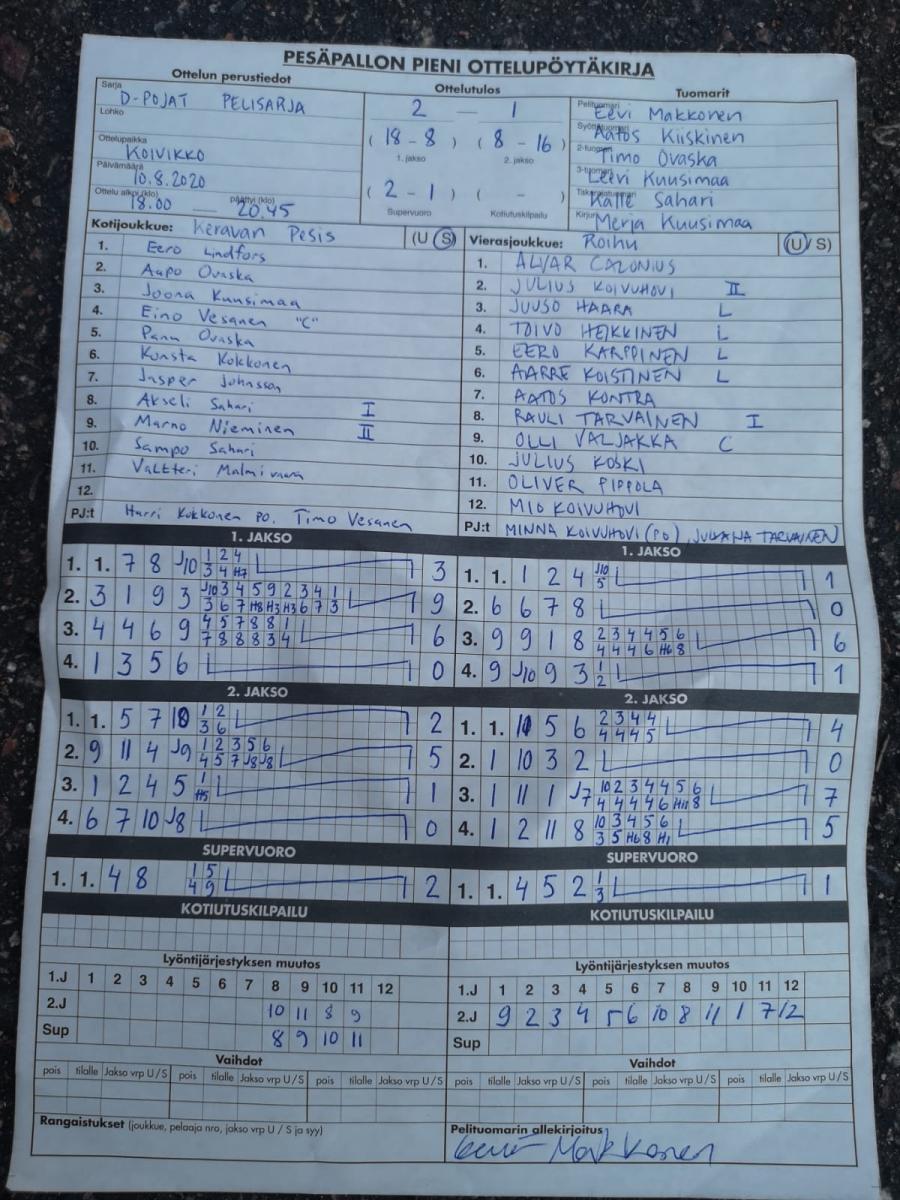 PESÄPALLON PIENI OTTELUPÖYTÄKIRJA
Ottelun perustiedot Ottelutulos Tuomarit
Sarja D-POJAT PELISARJA
Lohko
Ottelupaikka KOIVIKKO
Päivämäärä 10.8.2020
Ottelu alkoi (klo) 18.00 päättyi (klo) 20.45
2 — 1
( 18 - 8 ) ( 8 - 16 )
1. jakso 2. jakso
( 2 - 1 ) ( - )
Supervuoro Kotiutuskilpailu
Pelituomari Eevi Makkonen
Aatos Kiiskinen
2-tuomari Timo Ovaska
3-tuomari Leevi Kuusimaa
Takarajatuomari Kalle Sahari
Kirjuri Merja Kuusimaa
Kotijoukkue: Keravan Pesis (U S)
1. Eero Lindfors
2. Aapo Ovaska
3. Joona Kuusimaa
4. Eino Vesanen "C"
5. Panu Ovaska
6. Konsta Kokkonen
7. Jasper Johnsson
8. Akseli Sahari I
9. Marno Nieminen II
10. Sampo Sahari
11. Valtteri Malmivaara
12.
PJ:t Harri Kokkonen PO. Timo Vesanen
Vierasjoukkue: Roihu (U / S)
1. ALVAR CALONIUS
2. JULIUS KOIVUHOVI II
3. JUUSO HAARA L
4. TOIVO HEIKKINEN L
5. EERO KARPPINEN L
6. AARRE KOISTINEN L
7. AATOS KONTRA
8. RAULI TARVAINEN I
9. OLLI VALJAKKA C
10. JULIUS KOSKI
11. OLIVER PIPPOLA
12. MIO KOIVUHOVI
PJ:t MINNA KOIVUHOVI (PO), TARVAINEN
1. JAKSO
1. 1. 7 8 J10 1 2 4 3
3 4 H7
2. 3 1 9 3 J10 3 4 5 9 2 3 4 1 9
3 6 7 H8 H3 H3 6 7 3
3. 4 4 6 9 4 5 7 8 8 1 6
7 8 8 8 3 4
4. 1 3 5 6 0
1. JAKSO
1. 1. 1 2 4 J10 1
5
2. 6 6 7 8 0
3. 9 9 1 8 2 3 4 4 5 6 6
4 4 4 6 H6 8
4. 9 J10 9 3 1 1
2
2. JAKSO
1. 1. 5 7 10 1 2 2
3 6
2. 9 11 4 J9 1 2 3 5 6 5
4 5 7 J8 J8
3. 1 2 4 5 1 1
H5
4. 6 7 10 J8 0
2. JAKSO
1. 1. 10 5 6 2 3 4 4 4
4 4 4 5
2. 1 10 3 2 0
3. 1 11 1 J7 10 2 3 4 4 5 6 7
4 4 4 4 6 H11 8
4. 1 2 11 8 10 3 4 5 6 5
3 5 H6 8 H1
SUPERVUORO
1. 1. 4 8 1 5 2
4 9
SUPERVUORO
1. 1. 4 5 2 1 1
3
KOTIUTUSKILPAILU
KOTIUTUSKILPAILU
Lyöntijärjestyksen muutos
1.J 1 2 3 4 5 6 7 8 9 10 11 12
2.J 10 11 8 9
Sup 8 9 10 11
Lyöntijärjestyksen muutos
1.J 1 2 3 4 5 6 7 8 9 10 11 12
2.J 9 2 3 4 5 6 10 8 11 1 7 12
Sup
Vaihdot
pois tilalle Jakso vrp U / S pois tilalle Jakso vrp U / S pois tilalle Jakso vrp U / S
Vaihdot
pois tilalle Jakso vrp U / S pois tilalle Jakso vrp U / S pois tilalle Jakso vrp U/S
Rangaistukset (joukkue, pelaaja nro, jakso vrp U / S ja syy)
Pelituomarin allekirjoitus
Makkonen